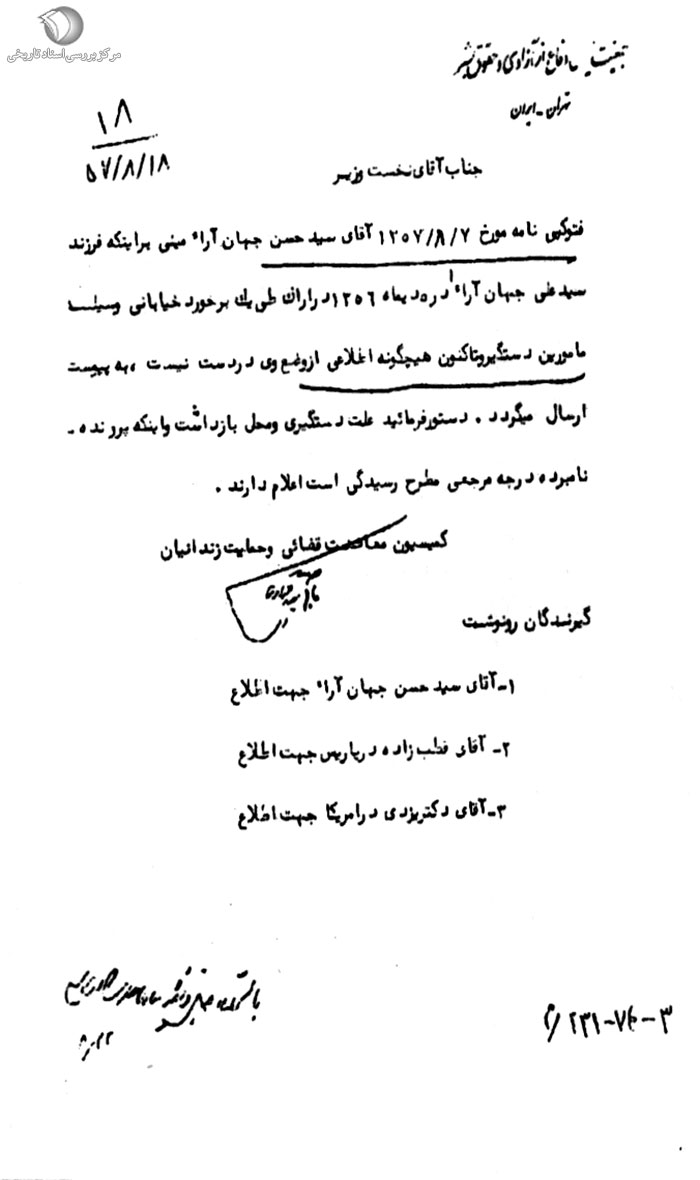 مرکز بررسی اسناد تاریخی
جمعیت دفاع از آزادی و حقوق بشر
تهران - ایران
۱۸
۵۷/۸/۱۸
جناب آقای نخست وزیر
فتوکپی نامه مورخ ۱۳۵۷/۸/۷ آقای سید حسن جهان آراء مبنی براینکه فرزند
سید علی جهان آراء در ۵ دیماه ۱۳۵۶ در اراک طی یک برخورد خیابانی وسیله
مامورین دستگیر و تاکنون هیچگونه اطلاعی از وضع وی در دست نیست ، به پیوست
ارسال میگردد . دستور فرمائید علت دستگیری و محل بازداشت و اینکه پرونده -
نامبرده در چه مرجعی مطرح رسیدگی است اعلام دارند .
کمیسیون معاضدت قضائی و حمایت زندانیان
گیرندگان رونوشت
۱- آقای سید حسن جهان آراء جهت اطلاع
۲- آقای قطب زاده در پاریس جهت اطلاع
۳- آقای دکتر یزدی در امریکا جهت اطلاع